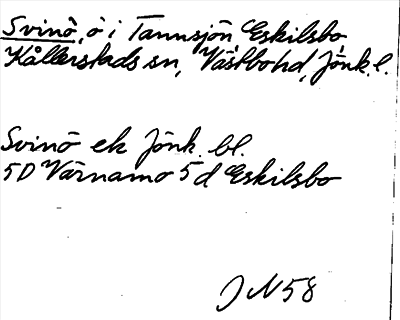 Svinö, ö i Tannsjön Eskilsbo
Kållerstads sn, Västbo hd, Jönk. l.
Svinö ek Jönk. bl.
5D Värnamo 5 d Eskilsbo
JN 58